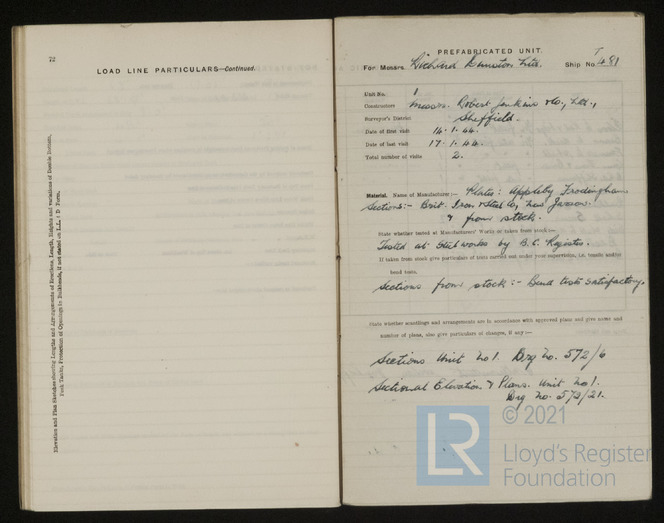 72
LOAD LINE PARTICULARS—Continued.
Elevation and Plan Sketches showing Lengths and Arrangements of Erections, Length, Heights and variations of Double Bottom,
Peak Tanks, Protection of Openings in Bulkheads, if not stated on L.L. 4 D Form.
PREFABRICATED UNIT.
For Messrs. Richard Dunston Ltd. Ship No. T 481
Unit No. 1
Constructors Messrs. Robert Jenkins & Co., Ltd.,
Surveyor's District Sheffield.
Date of first visit 14.1.44.
Date of last visit 17.1.44.
Total number of visits 2.
Material. Name of Manufacturer:— Plates: Appleby Frodingham
Sections:- Brit. Iron & Steel Co, New Jarrow.
& from stock.
State whether tested at Manufacturers' Works or taken from stock:—
Tested at Steelworks by B.C. Register.
If taken from stock give particulars of tests carried out under your supervision, i.e. tensile and/or
bend tests.
Sections from stock:- Bend tests satisfactory.
State whether scantlings and arrangements are in accordance with approved plans and give names and
number of plans, also give particulars of changes, if any:—
Sections Unit No 1. Drg No. 572/6
Sectional Elevation & Plans. Unit No 1.
Drg No. 572/21.
© 2021
LR
Lloyd's Register
Foundation